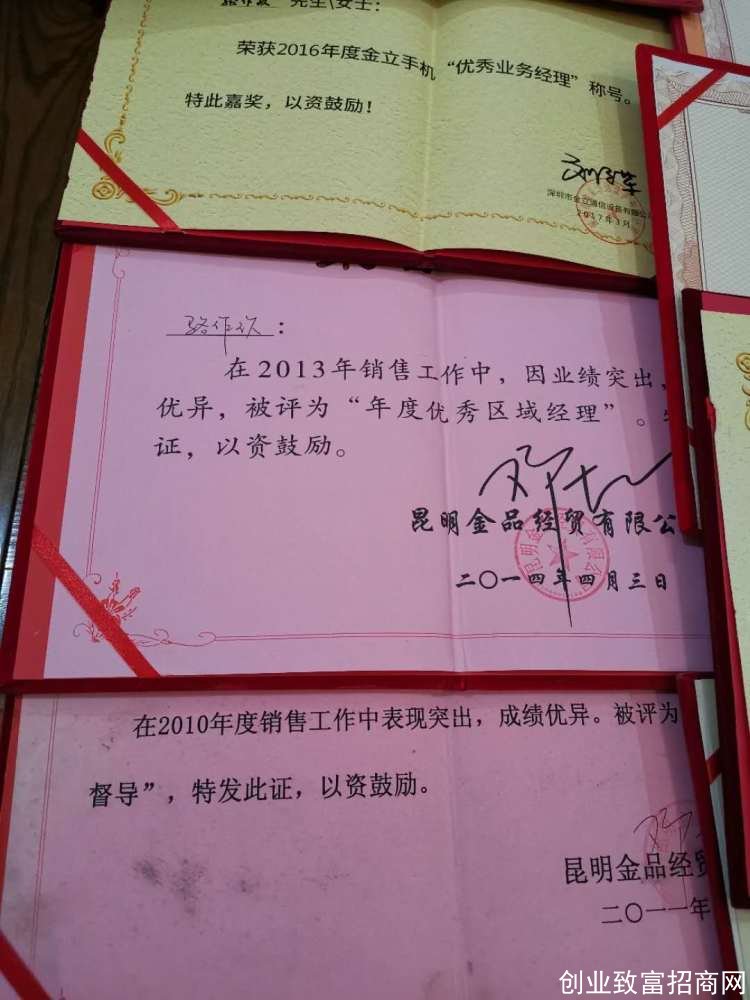 先生\女士：
荣获2016年度金立手机“优秀业务经理”称号。
特此嘉奖，以资鼓励！
深圳市金立通信设备有限公
2017年3月
骆作
：
在2013年销售工作中，因业绩突出，
优异，被评为“年度优秀区域经理”。
证，以资鼓励。
昆明金品经贸有限公
二〇一四年四月三日
在2010年度销售工作中表现突出，成绩优异。被评为
督导”，特发此证，以资鼓励。
昆明金品经贸
二〇一一年
创业致富招商网